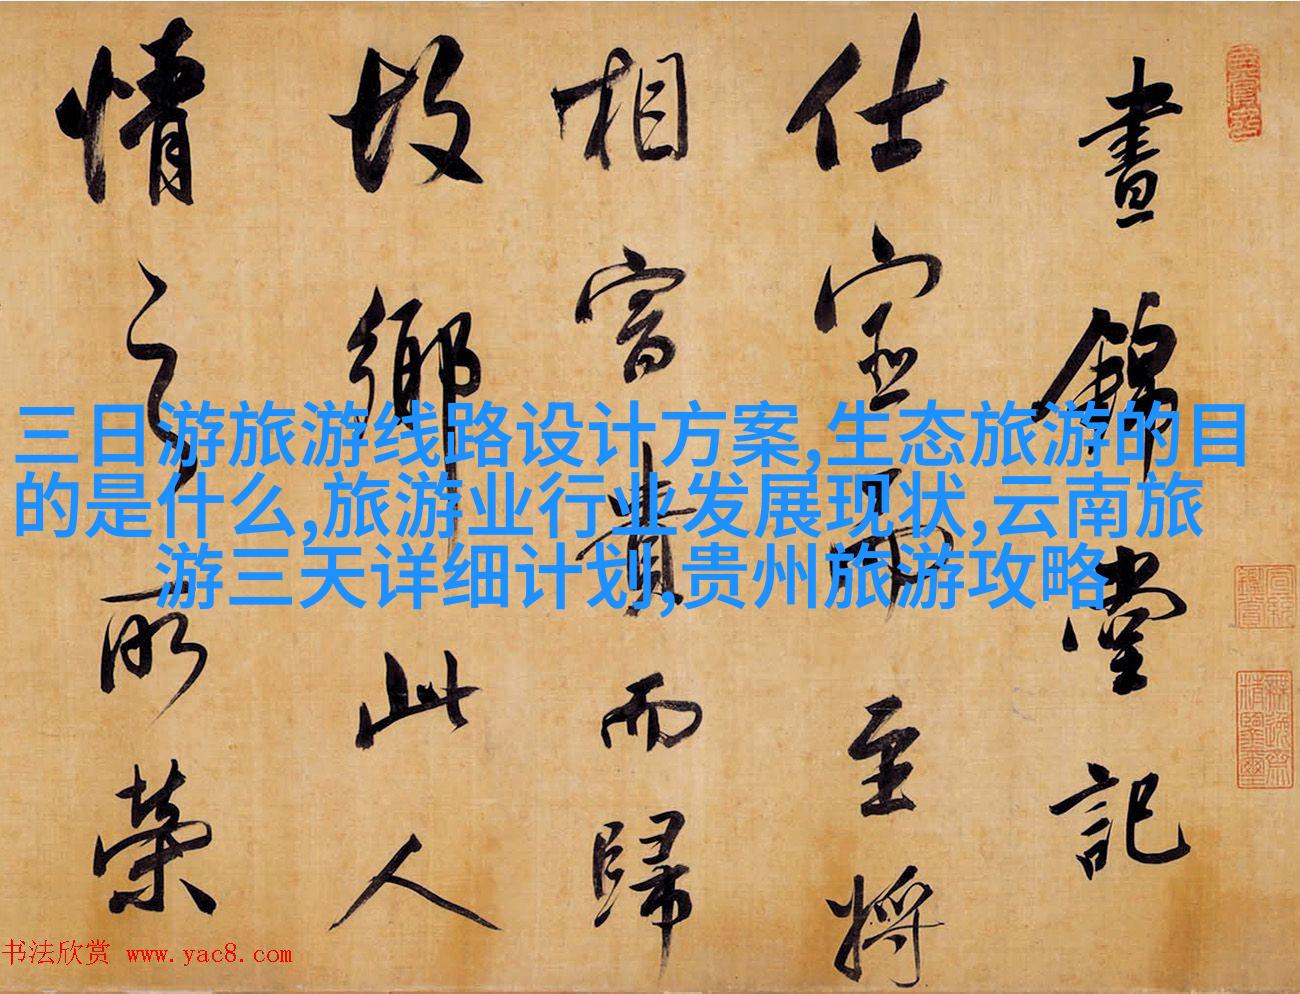 晝錦堂記
仕宦而至將
相富貴而歸
故鄉此人
情之所榮
三日游旅游线路设计方案,生态旅游的目
的是什么,旅游业行业发展现状,云南旅
游三天详细计划,贵州旅游攻略
书法欣赏 www.yac8.com